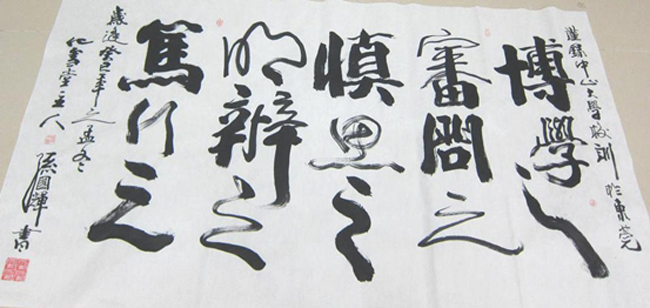 謹錄中山大學校訓於東莞
博學之
審問之
慎思之
明辨之
篤行之
歲逢癸巳年之孟冬
堂主人
孫國輝書